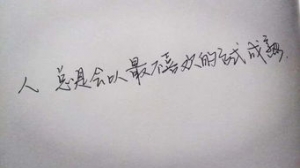 人 总是会以最不喜欢的方式成熟.